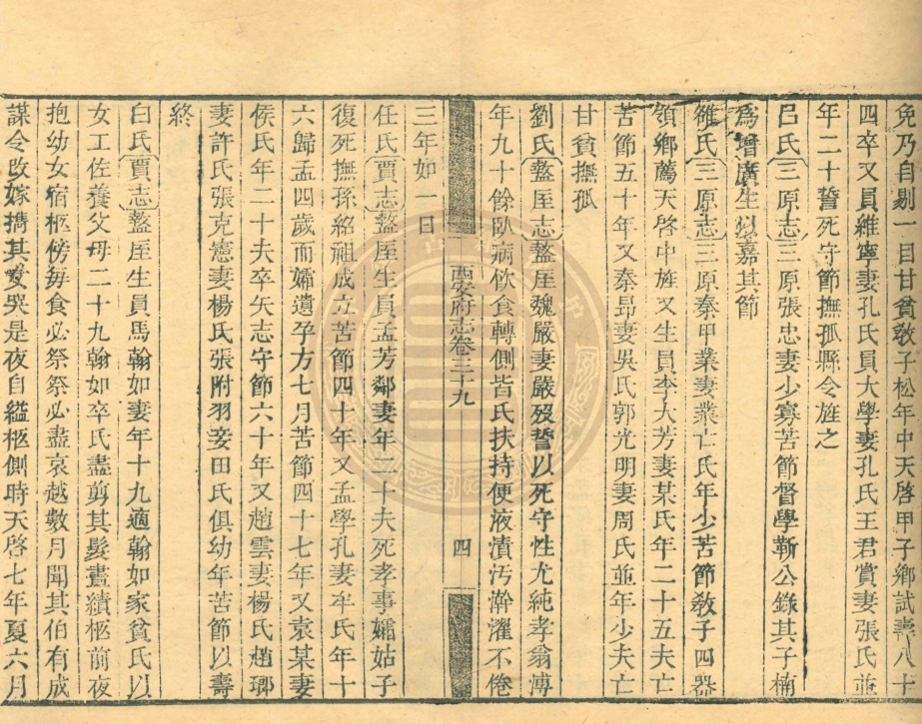 免乃自剔一目甘貧敎子松年中天啓甲子鄉試壽八十
四卒又員維寧妻孔氏員大學妻孔氏王君賞妻張氏並
年二十誓死守節撫孤縣令旌之
呂氏三原志三原張忠妻少寡苦節督學靳公錄其子楠
爲增廣生以嘉其節
雒氏三原志三原秦甲業妻業亡氏年少苦節敎子四器
領鄉薦天啓中旌又生員李大芳妻某氏年二十五夫亡
苦節五十年又秦昻妻吳氏郭光明妻周氏並年少夫亡
甘貧撫孤
劉氏盩厔志盩厔魏嚴妻嚴歿誓以死守性尤純孝翁溥
年九十餘臥病飮食轉側皆氏扶持便液漬汚澣濯不倦
三年如一日
西安府志卷三十九
四
任氏賈志盩厔生員孟芳鄰妻年二十夫死孝事孀姑子
復死撫孫紹祖成立苦節四十年又孟學孔妻牟氏年十
六歸孟四歲而孀遺孕方七月苦節四十七年又袁某妻
侯氏年二十夫卒矢志守節六十年又趙雲妻楊氏趙瑯
妻許氏張克憲妻楊氏張附羽妾田氏俱幼年苦節以壽
終
白氏賈志盩厔生員馬翰如妻年十九適翰如家貧氏以
女工佐養父母二十九翰如卒氏盡剪其髮晝績柩前夜
抱幼女宿柩傍每食必祭祭必盡哀越數月聞其伯有成
謀令改嫁擕其女哭是夜自縊柩側時天啓七年夏六月